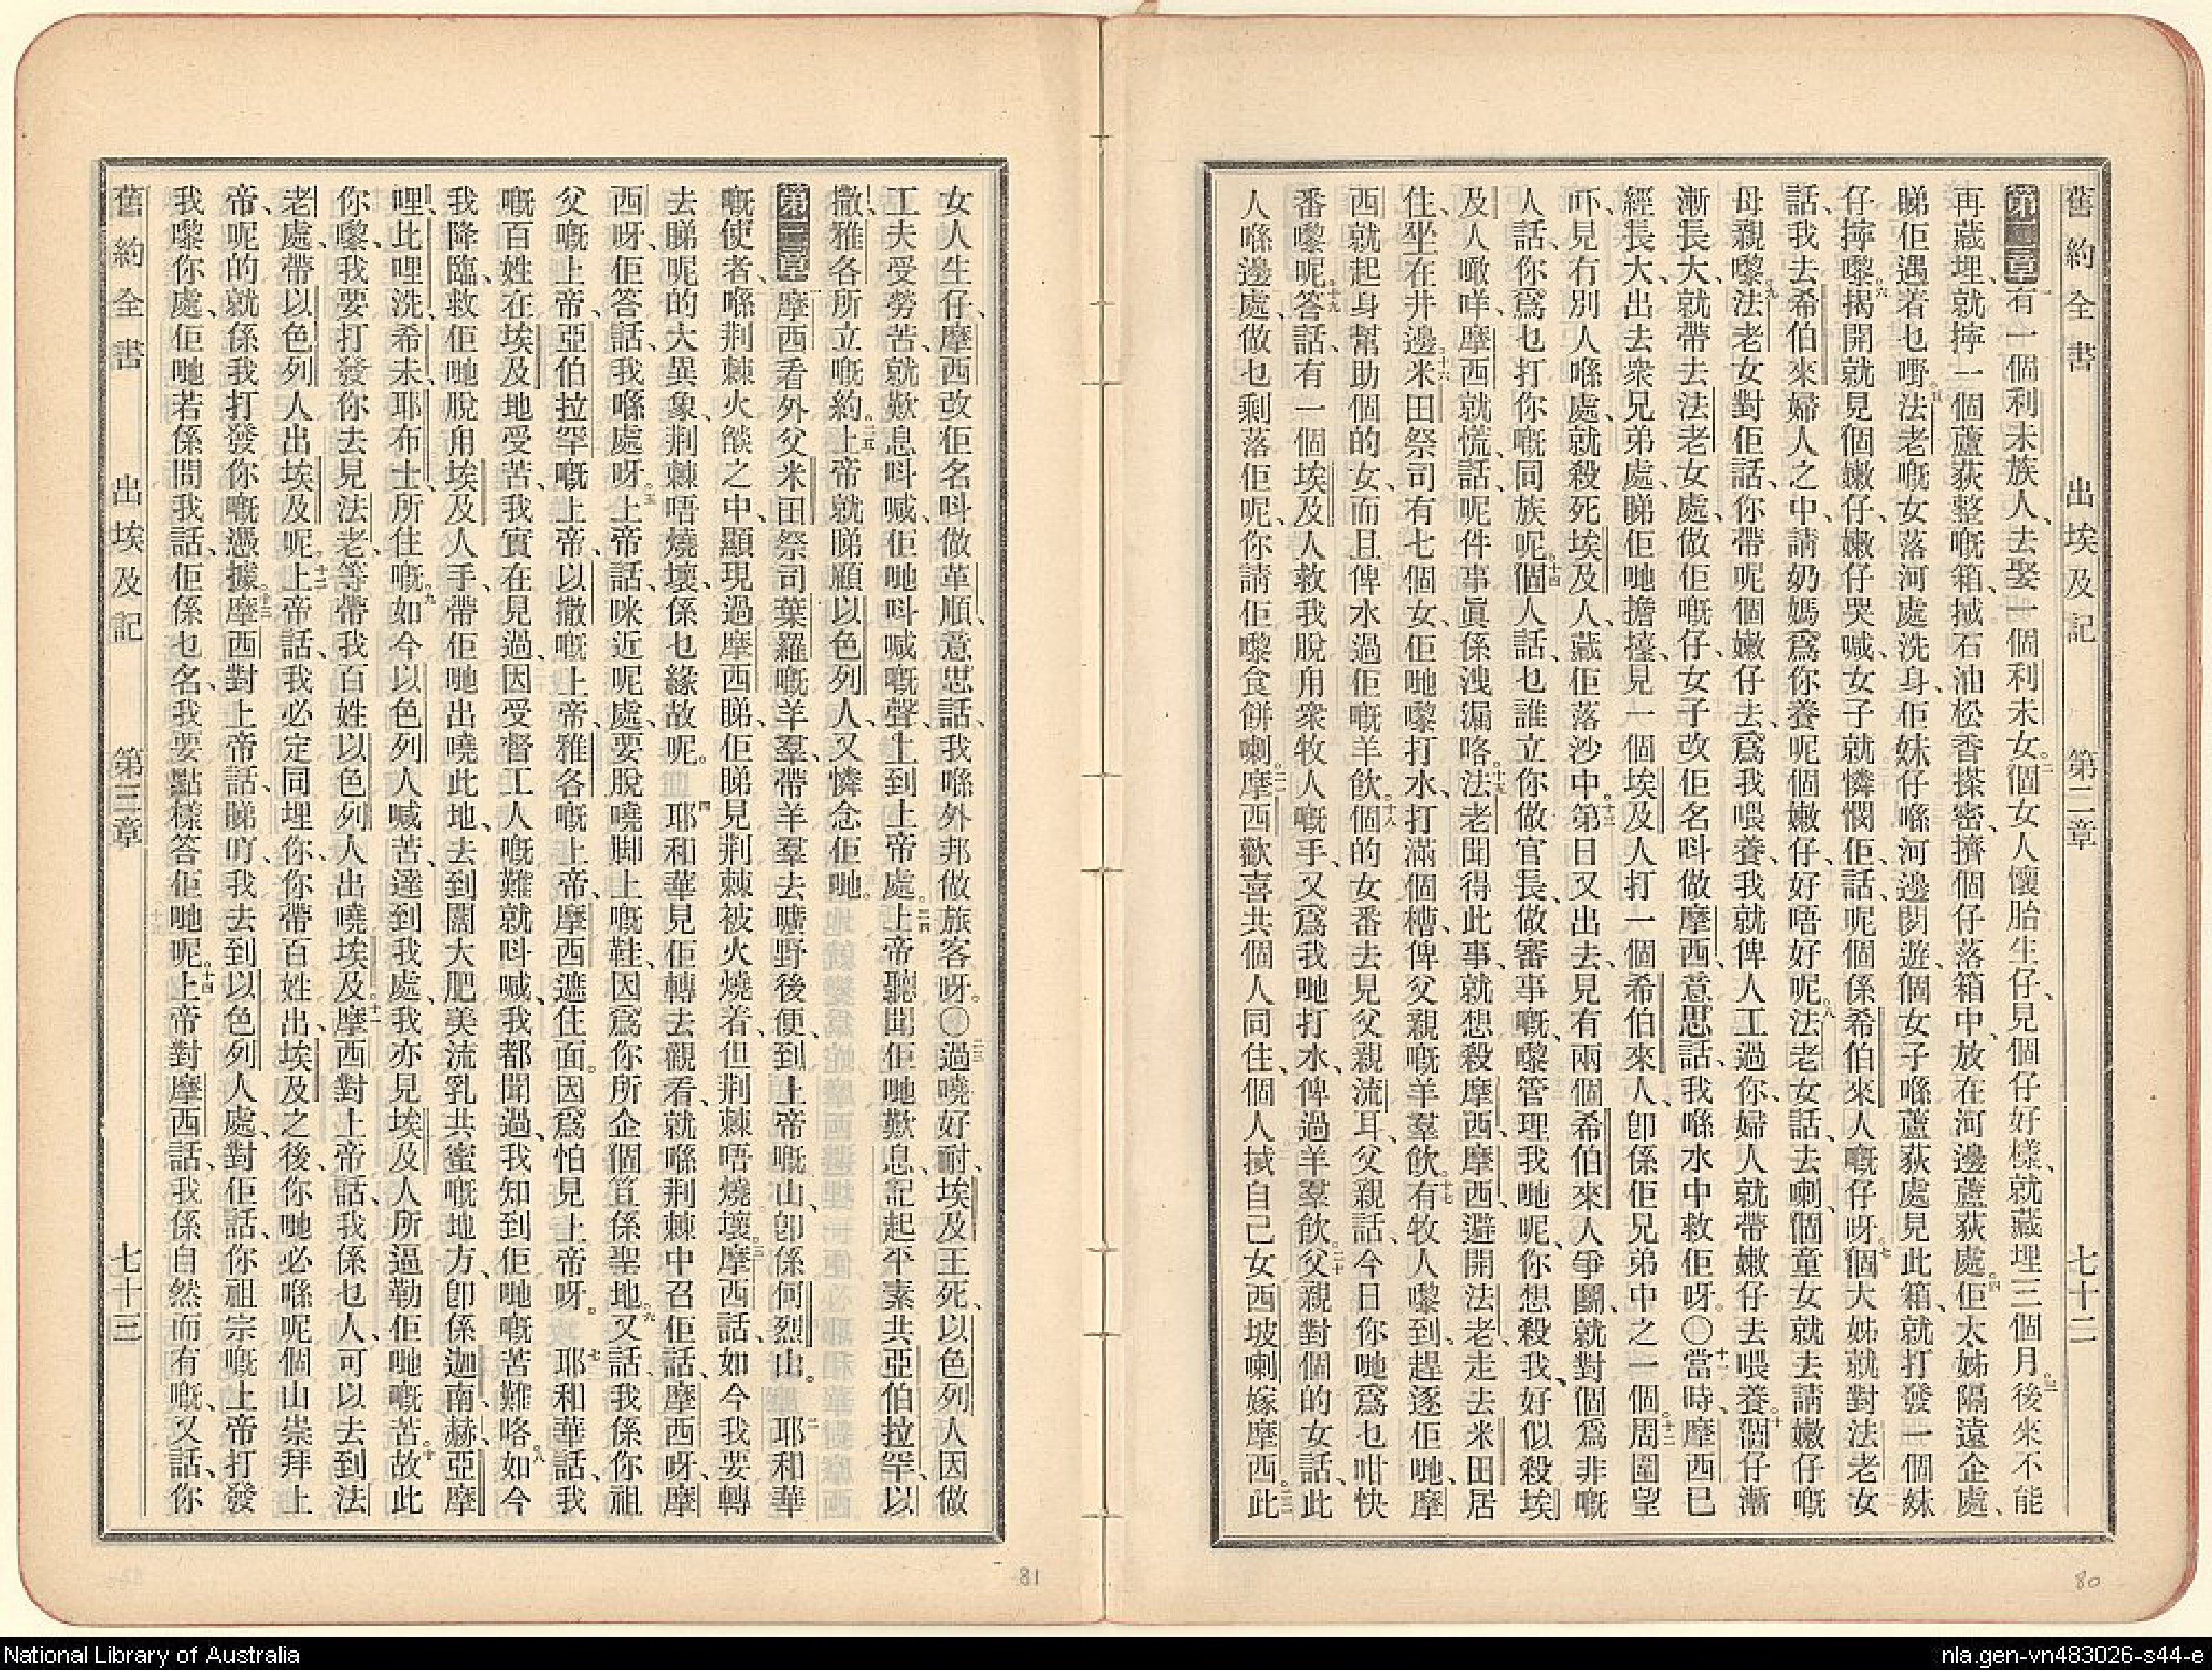 舊約全書 出埃及記 第二章 七十二
第二章一有一個利未族人、去娶一個利未女。二個女人懷胎生仔、見個仔好樣、就藏埋三個月。三後來不能
再藏埋、就擰一個蘆荻整嘅箱、搣石油松香搽密、擠個仔落箱中、放在河邊蘆荻處。四佢大姊隔遠企處、
睇佢遇着乜嘢。五法老嘅女落河處洗身、佢妹仔喺河邊閒遊、個女子喺蘆荻處見此箱、就打發一個妹
仔擰嚟。六揭開就見個嫩仔、嫩仔哭喊、女子就憐憫佢、話、呢個係希伯來人嘅仔呀。七個大姊就對法老女
話、我去希伯來婦人之中、請奶媽爲你養呢個嫩仔、好唔好呢。八法老女話、去喇、個童女就去請嫩仔嘅
母親嚟。九法老女對佢話、你帶呢個嫩仔去、爲我喂養、我就俾人工過你、婦人就帶嫩仔去喂養。十個仔漸
漸長大、就帶去法老女處、做佢嘅仔、女子改佢名呌做摩西、意思話、我喺水中救佢呀。〇十一當時、摩西已
經長大、出去衆兄弟處、睇佢哋擔擡、見一個埃及人打一個希伯來人、卽係佢兄弟中之一個。十二周圍望
吓、見冇別人喺處、就殺死埃及人、藏佢落沙中。十三第日又出去、見有兩個希伯來人爭鬭、就對個爲非嘅
人話、你爲乜打你嘅同族呢。十四個人話、乜誰立你做官長、做審事嘅、嚟管理我哋呢、你想殺我、好似殺埃
及人噉咩、摩西就慌、話、呢件事眞係洩漏咯。十五法老聞得此事、就想殺摩西、摩西避開法老、走去米田居
住、坐在井邊。十六米田祭司有七個女、佢哋嚟打水、打滿個槽、俾父親嘅羊羣飲。十七有牧人嚟到、趕逐佢哋、摩
西就起身幫助個的女、而且俾水過佢嘅羊飲。十八個的女番去見父親流耳、父親話、今日你哋爲乜咁快
番嚟呢。十九答話、有一個埃及人救我脫甪衆牧人嘅手、又爲我哋打水、俾過羊羣飲。二十父親對個的女話、此
人喺邊處、做乜剩落佢呢、你請佢嚟食餅喇。二一摩西歡喜共個人同住、個人搣自己女西坡喇嫁摩西。二二此
女人生仔、摩西改佢名呌做革順、意思話、我喺外邦做旅客呀。〇二三過嘵好耐、埃及王死、以色列人因做
工夫受勞苦、就歎息呌喊、佢哋呌喊嘅聲、上到上帝處。二四上帝聽聞佢哋歎息、記起平素共亞伯拉罕、以
撒、雅各所立嘅約。二五上帝就睇顧以色列人、又憐念佢哋。
第三章一摩西看外父米田祭司葉羅嘅羊羣、帶羊羣去曠野後便、到上帝嘅山、卽係何烈山。二耶和華
嘅使者、喺荆棘火燄之中、顯現過摩西睇、佢睇見荆棘被火燒着、但荆棘唔燒壞。三摩西話、如今我要轉
去睇呢的大異象、荆棘唔燒壞、係乜緣故呢。四耶和華見佢轉去觀看、就喺荆棘中召佢話、摩西呀、摩
西呀、佢答話、我喺處呀。五上帝話、咪近呢處、要脫嘵脚上嘅鞋、因爲你所企個笪係聖地。六又話、我係你祖
父嘅上帝、亞伯拉罕嘅上帝、以撒嘅上帝、雅各嘅上帝、摩西遮住面、因爲怕見上帝呀。七耶和華話、我
嘅百姓在埃及地受苦、我實在見過、因受督工人嘅難就呌喊、我都聞過、我知到佢哋嘅苦難咯。八如今
我降臨、救佢哋脫甪埃及人手、帶佢哋出嘵此地、去到闊大肥美流乳共蜜嘅地方、卽係迦南、赫、亞摩
哩、比哩洗、希未、耶布士、所住嘅。九如今以色列人喊苦、達到我處、我亦見埃及人所逼勒佢哋嘅苦。十故此
你嚟、我要打發你去見法老、等帶我百姓以色列人出嘵埃及。十一摩西對上帝話、我係乜人、可以去到法
老處、帶以色列人出埃及呢。十二上帝話、我必定同埋你、你帶百姓出埃及之後、你哋必喺呢個山崇拜上
帝、呢的就係我打發你嘅憑據。十三摩西對上帝話、睇吖、我去到以色列人處、對佢話、你祖宗嘅上帝打發
我嚟你處、佢哋若係問我話、佢係乜名、我要點樣答佢哋呢。十四上帝對摩西話、我係自然而有嘅、又話、你
舊約全書 出埃及記 第三章 七十三
80
81
National Library of Australia
nla.gen-vn483026-s44-e